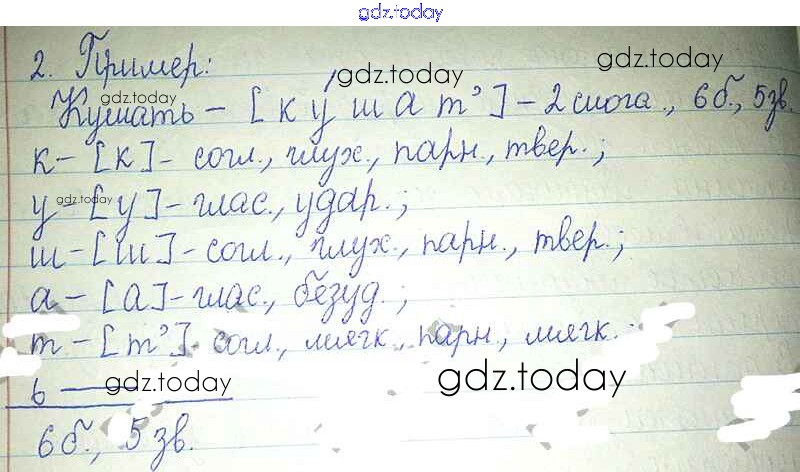 gdz.today
2. Пример:
gdz.today
gdz.today
gdz.today
Кушать – [к у́ ш а т'] – 2 слога., 6 б., 5 зв.
к – [к] – согл., глух., парн., твер.;
gdz.today
у – [у] – глас., удар.;
ш – [ш] – согл., глух., парн., твер.;
а – [а] – глас., безуд.;
т – [т'] – согл., мягк., парн., мягк.
gdz.today
gdz.today
ь ———
6 б., 5 зв.